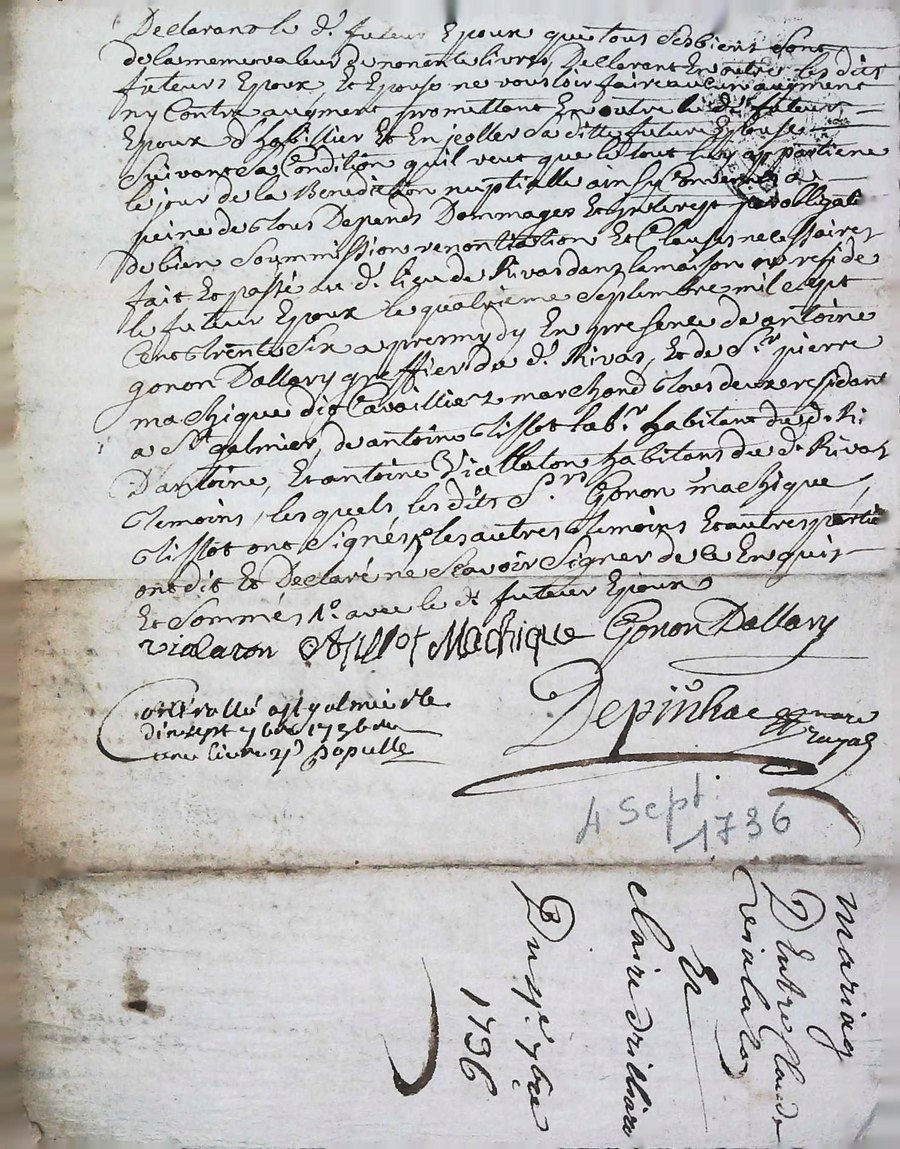 Declarant le d.t futeur Epoux que tous Ses biens Sont
de la meme valeur de nonente livres, Declarent En outre les dits
futeurs Epoux, Et Epouse ne vousloir faire aucun augment
ny Contre augment, promettant En outre le d.t futeur
Epoux d'habillier Et Enjoller Sa ditte future Epouse
Suivant Sa Condition quil veut que le tout luy appartiene
le jour de la Benediction nuptialle ainsy Convenu a
peine de tous Depends Dommages Et Interest
de bien Soummission renontiation Et Clauses necessaires
fait Et passé au d.t lieu de Rivas dans la maison ou reside
le futeur Epoux le quatrieme Septembre mil Sept
Cent trente Six apres mydy En presence de antoine
gonon Dallary greffier da d.t Rivas, Et de S.r pierre
machique dit Cavaillier marchond tous deux residant
a S.t galmier, de antoine tissot lab.r habitant du d. Ri.
D antoine, Et antoine Viallaton habitans du d.t Rivas
temoins, les quels les dits S.rs Gonon machique
tissot ont Signés les autres temoins Et autres partie
ont dit Et Declaré ne Scavoir Signer de le Enquis
Et Sommés avec le d.t futeur Epoux
vialaton Atissot Machique Gonon Dallary
Contrallé a S.t galmier le
dixsept 7bre 1736
une livre Populle
Depinhac
4 Sept. 1736
mariag
D'Entre Claude
Et
claire
Du 4.e 7bre
1736